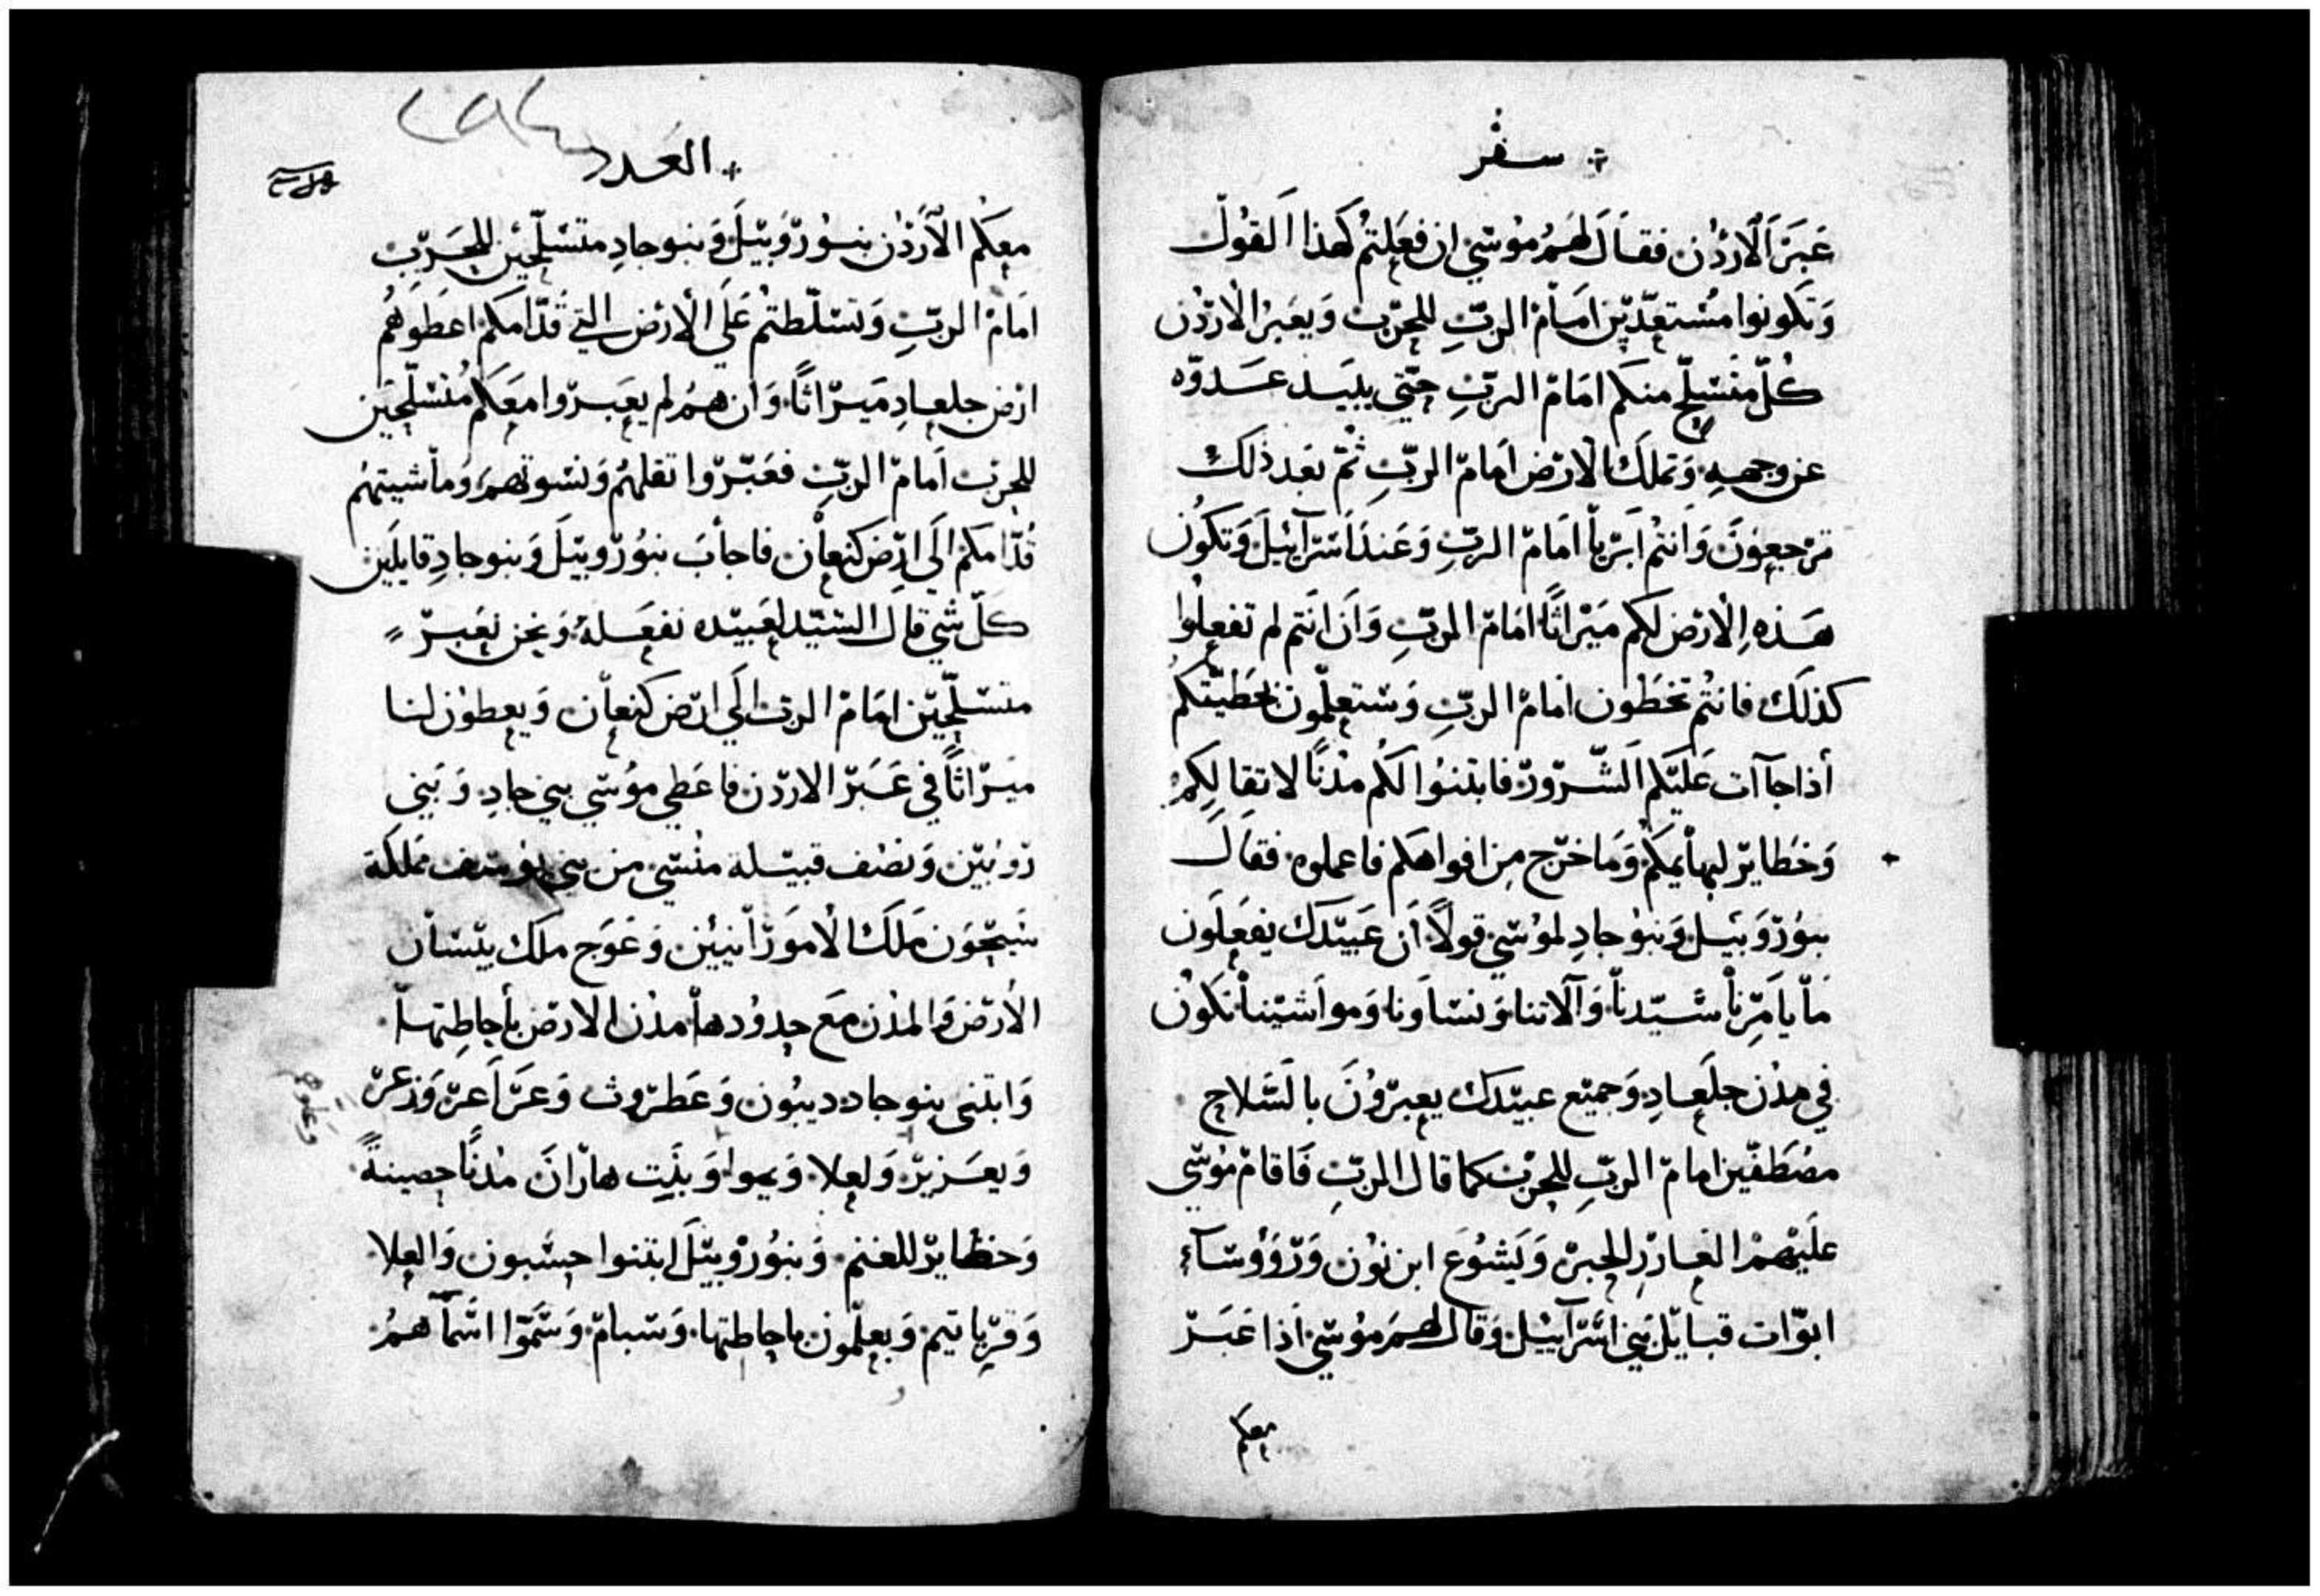 سفر
عَبَرَ الاردُن فقال لَهُمُ مُوسَي ان فعَلتُم كَهذا القول
وَتكونوا مُستعدّين امامَ الربِّ للحرب وَيعبرُ الاردُن
كُلّ متسلّح منكم امَامَ الربِّ حتّي يبيَد عَدوّه
عن وجهِهِ وَتملك الارض امَام الربِّ ثمّ بَعد ذلك
ترجعوُنَ وَانتُم ابَريا امَام الربِّ وَعَندَ اسَرَآئيل وَتكوُن
هَذهِ الارض لكم مَيرَاثًا امَام الربِّ وَاَن انتم لم تفعلُوا
كذلَك فانتُم تخطَون امَام الربِّ وَستعلمُون بخطيّتكم
أذا جَآات عَليَكم الشّرور فابتنُوا لكُم مدُنًا لاتقا لكم
وَحَظاير لبهأيمكمُ وَمَا خرَج مِن افواهكم فاعملوه فقال
بنوُ روَبيَل وَبنوُ جادِ لموُسَي قولاً أن عَبيَدك يفعَلَون
مَا يأمَرِنا سيّدنا وَآلاتنا وَنسَاونا وَمواشَيْنا تكوُن
في مدُن جلَعاد وَجميَع عبيَدك يعبرَوُنَ بالسَّلاح
مصُطَفّين امامَ الربِّ للحرب كما قال الربِّ فَاقامَ مُوسَي
علَيَهمُ العازرِ الحبر وَيَشوُعَ ابن نوُن وَروَؤُسَآء
ابوّات قبايل بَني اسَرَآئيل وَقال لهم موُسَي اَذا عَبَر
معكم
العَدد
معكم الأردُن بنوُ روَبيَل وَبنو جادِ متسَلّحيَن للحَرب
امَام الربِّ وَتسَلّطتم عَلَي الأرض التي قدَّامَكم اعطَوهُم
ارض جلعادِ مَيرَاثًا وَان همُ لم يعَبروا معَكمُ مُتسَلّحيَن
للحرب امَام الربِّ فعَبّروا ثقلهُم وَنسوتهمَ وَمأشيتهمُ
قدّامكم الَي ارض كنعأن فاجأبَ بنوُ روبيَل وَبنو جادِ قايلَين
كلّ شي قال السَيّد لعَبيَده نفعَلهُ وَنحن نعَبر
متسَلّحيَن امَامَ الرب الَي ارض كنعأن وَيعطوُن لنا
ميَراثًا في عَبَر الاردن فاعَطي موُسَي بني جادِ وَبَني
روبَيَن وَنصف قبيَلة منُسّي من بني يوسف مملكة
سَيحَوُن مَلك الأموَرأنييَن وَعَوَج ملك بيَسَأن
الأرض وَالمدُن معَ حدوُدها مدُن الارض بأحاطِتها
وَابتنى بنو جاد ديبوُن وَعَطروث وَعَرَاَعر وَزعر
وَيعَزير وَلعلا وَيموا وَبَيت هاراَنَ مدُنًا حصينةً
وَحظاير للغنم وَبنوُ روُبيَلَ ابتنوا حسَبون وَالعلا
وَقرياتيم وَبعلمّون باحاطتها وَسبام وَسَّمَوا اسَّمآهمُ